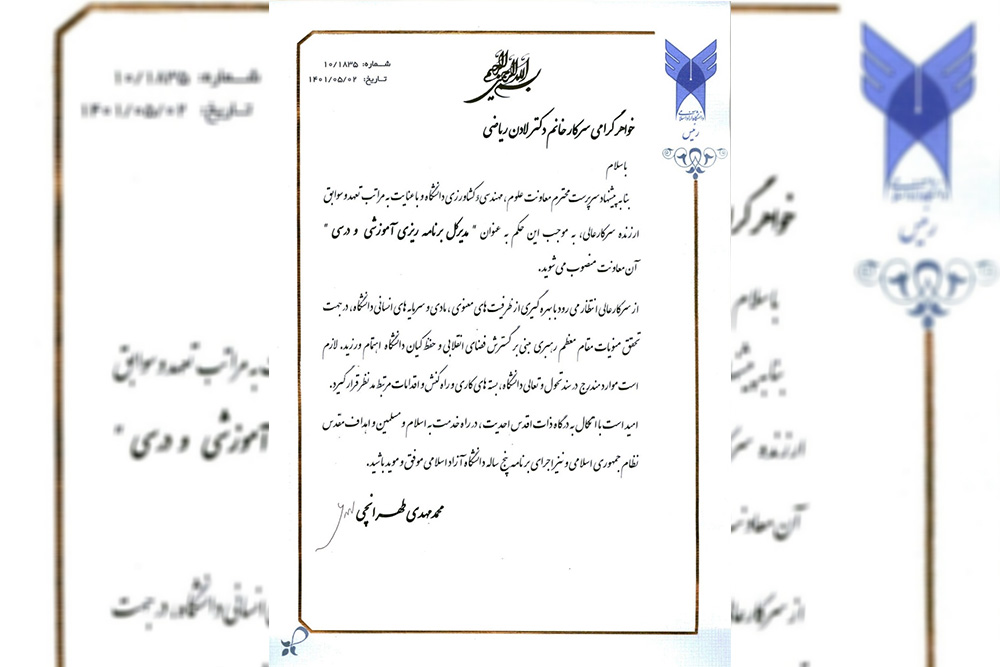 بسم الله الرحمن الرحیم
شماره: ۱۰/۱۸۳۵
تاریخ: ۱۴۰۱/۰۵/۰۲
رئیس
خواهر گرامی سرکار خانم دکتر لادن ریاضی
باسلام
بنا به پیشنهاد سرپرست محترم معاونت علوم، مهندسی و کشاورزی دانشگاه و با عنایت به مراتب تعهد و سوابق
ارزنده سرکارعالی، به موجب این حکم به عنوان " مدیرکل برنامه ریزی آموزشی و درسی "
آن معاونت منصوب می شوید.
از سرکارعالی انتظار می رود با بهره گیری از ظرفیت های معنوی، مادی و سرمایه های انسانی دانشگاه، در جهت
تحقق منویات مقام معظم رهبری مبنی بر گسترش فضای انقلابی و حفظ کیان دانشگاه اهتمام ورزید. لازم
است موارد مندرج در سند تحول و تعالی دانشگاه، بسته های کاری و راه کنش و اقدامات مرتبط مد نظر قرار گیرد.
امید است با اتکال به درگاه ذات اقدس احدیت، در راه خدمت به اسلام و مسلمین و اهداف مقدس
نظام جمهوری اسلامی و نیز اجرای برنامه پنج ساله دانشگاه آزاد اسلامی موفق و موید باشید.
محمد مهدی طهرانچی